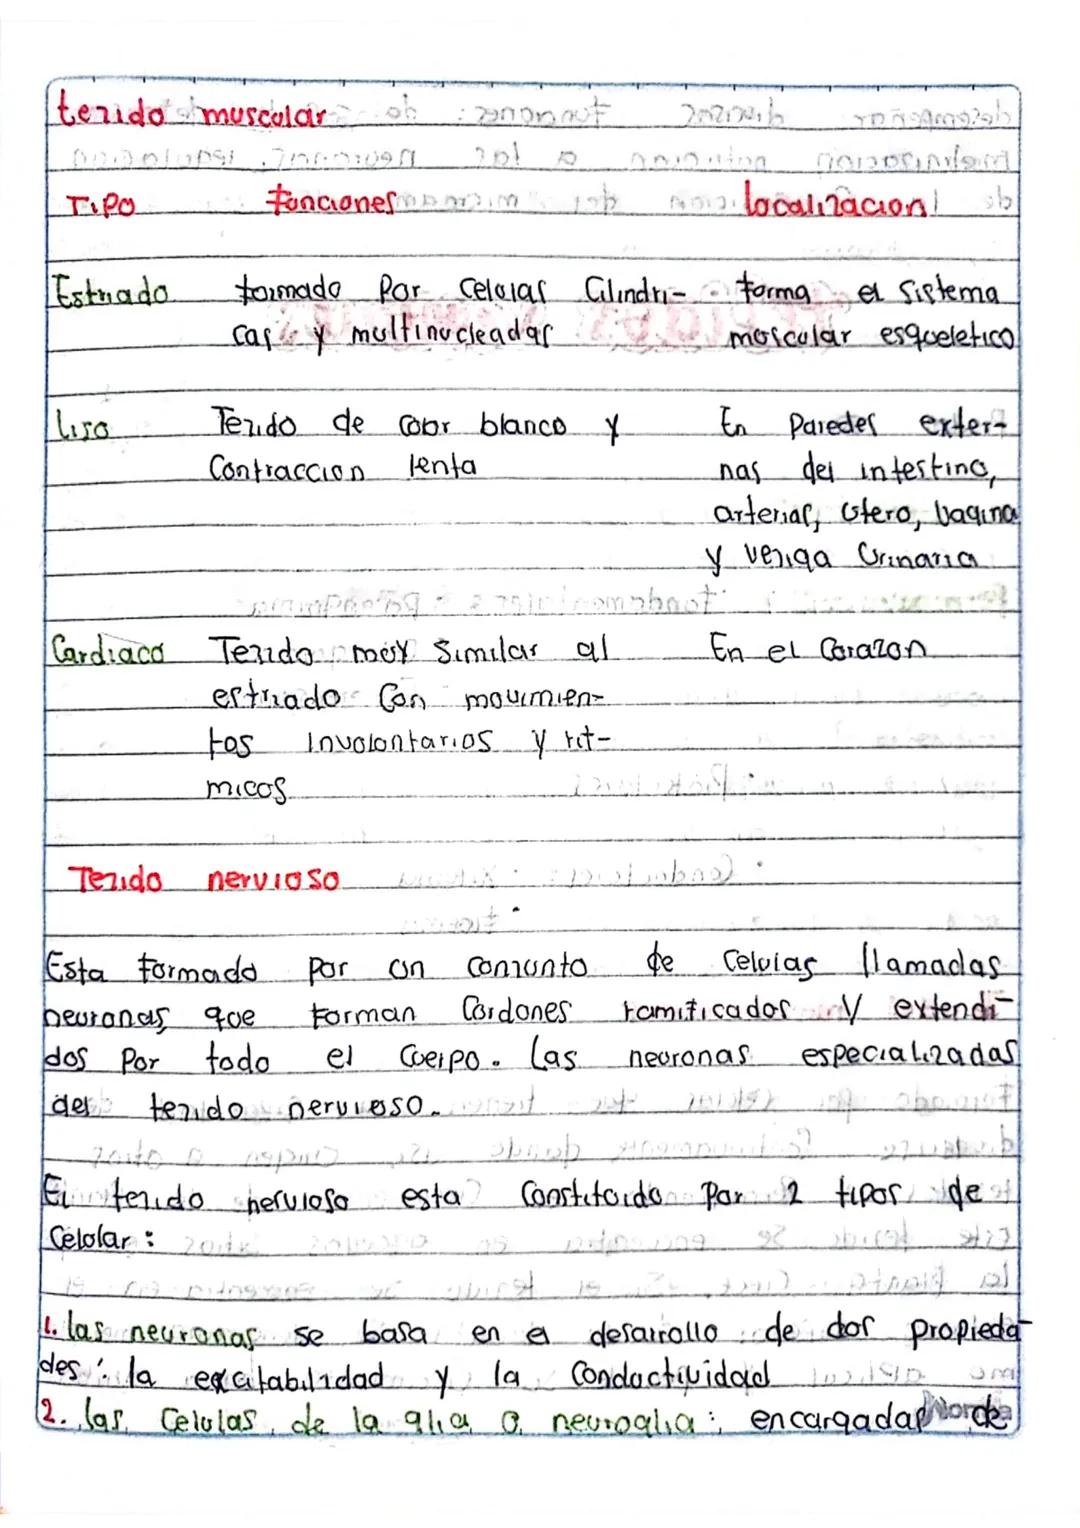 tejido muscular
Tipo funciones localización
Estriado formado Por celulas Cilindri- forma el sistema
cas y multinucleadas muscular esqueletico
liso Tejido de color blanco y En Paredes exter-
Contraccion lenta nas del intestino,
arterias, utero, vagina
y vejiga Urinaria
Cardiaco Tejido muy Similar al En el Corazon
estriado Con movimien-
tos Involontarios y rit-
micos
Tejido nervioso
Esta formado por un conjunto de Celulas llamadas
neuronas que forman Cordones ramificados y extendi-
dos por todo el cuerpo. las neuronas especializadas
del tejido nervioso.
El tejido nervioso esta Constituido Por 2 tipos de
Celulas:
1. las neuronas se basa en el desarrollo de dos propieda
des: la excitabilidad y la Conductividad
2. las Celulas de la glia o neuroglia: encargadas de